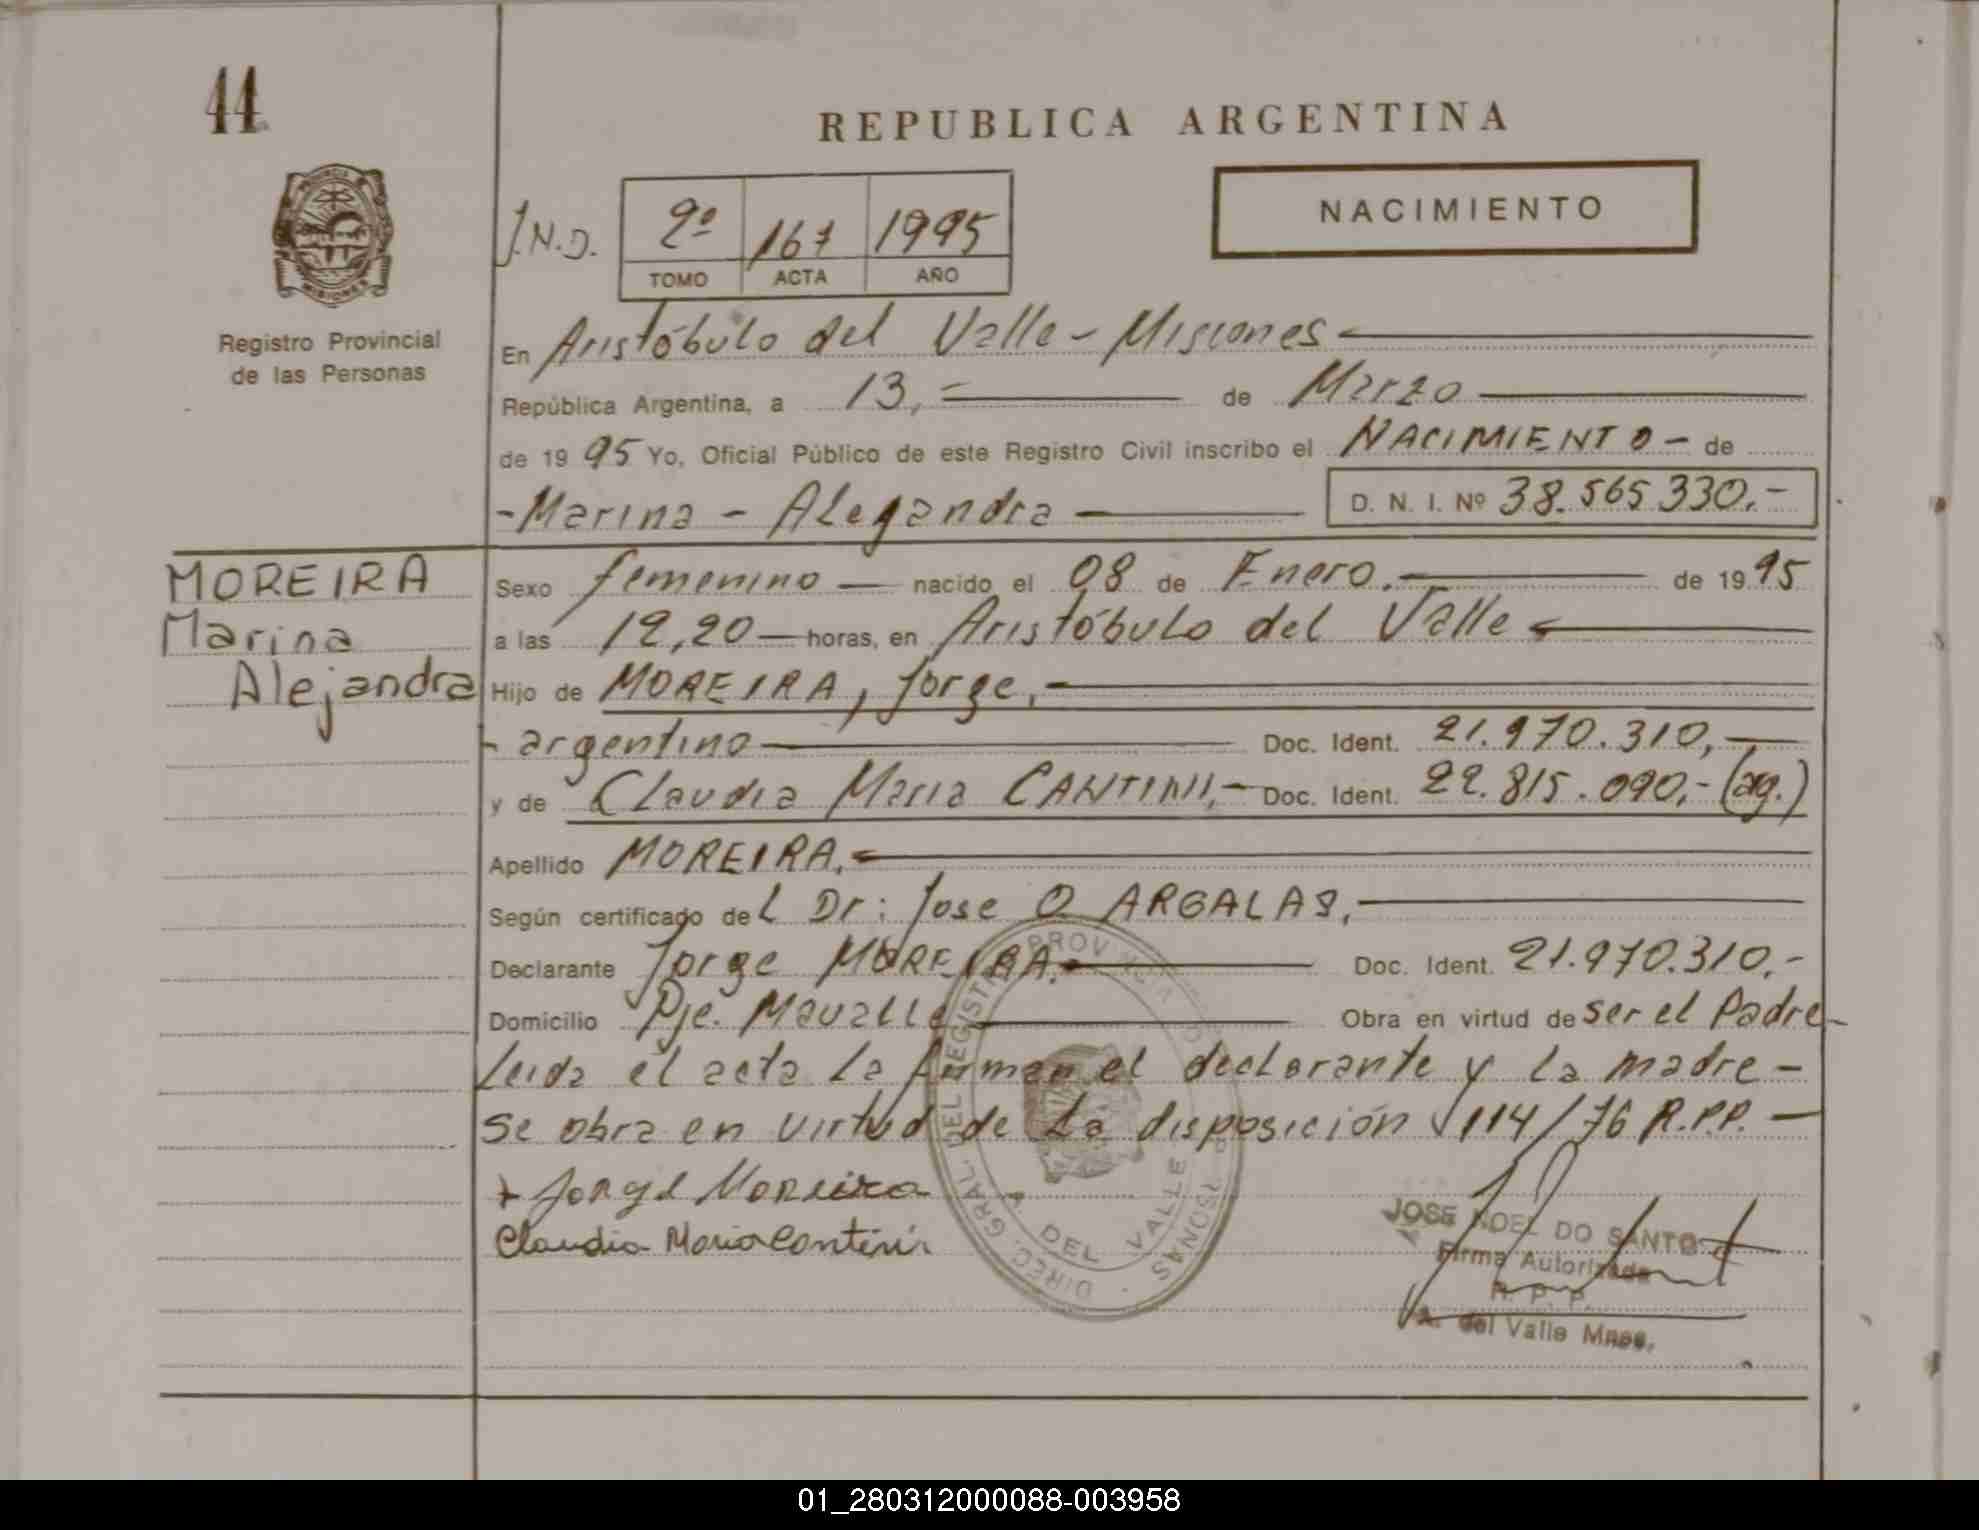 44
REPUBLICA ARGENTINA
NACIMIENTO
J.N.D.
2º 167 1995
TOMO ACTA AÑO
PROVINCIA
MISIONES
Registro Provincial
de las Personas
En Aristóbulo del Valle - Misiones
República Argentina, a 13,- de Marzo
de 1995 Yo, Oficial Público de este Registro Civil inscribo el NACIMIENTO - de
- Marina - Alejandra
D. N. I. Nº 38.565 330.-
MOREIRA
Marina
Alejandra
Sexo femenino — nacido el 08 de Enero. — de 1995
a las 12,20 — horas, en Aristóbulo del Valle
Hijo de MOREIRA, Jorge,
- argentino — Doc. Ident. 21.970.310,-
y de Claudia Maria CANTINI,- Doc. Ident. 22.815.090,- (ag.)
Apellido MOREIRA.
Según certificado del Dr: Jose O ARGALAS,
Declarante Jorge MOREIRA. Doc. Ident. 21.970.310.-
Domicilio Pje. Mavalle Obra en virtud de ser el Padre
Leida el acta la firman el declarante y la madre -
se obra en virtud de la disposición 114/76 R.P.P. -
Jorge Moreira
Claudia Maria Cantini
DIREC. GRAL. DEL REGISTRO PROVINCIAL DE PERSONAS
A. DEL VALLE
JOSE NOEL DO SANTOS
Firma Autorizada
R. P. P.
A. del Valle Mnes.
01_280312000088-003958